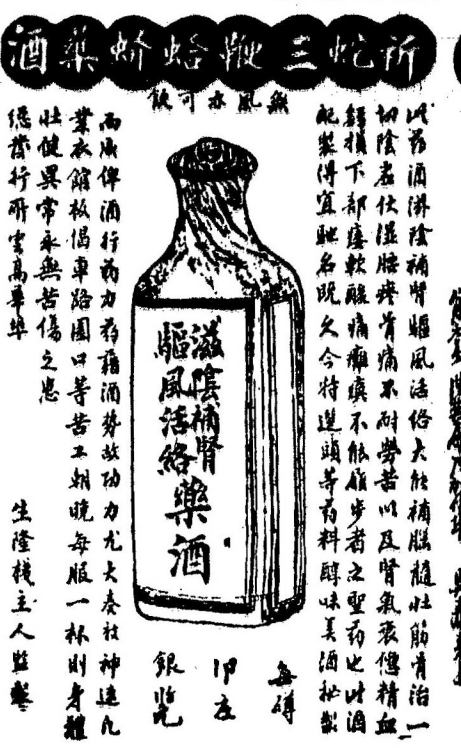 祈蛇三鞭蛤蚧藥酒
無風亦可飲
此葯酒滋陰補腎驅風活絡大能補腦髓壯筋骨治一
切陰虛伏濕腰疼骨痛不耐勞苦以及腎氣衰憊精血
虧損下部痿軟酸痛癱瘓不能履步者之聖葯也此酒
配製得宜馳名既久今特選頭等葯料醇味美酒秘製
滋陰補腎
驅風活絡藥酒
每罇
而成俾酒行葯力葯藉酒勢故功力尤大奏效神速凡
業衣舘板偈車路園口等苦工朝晚每服一杯則身體
壯健異常永無苦傷之患
總發行所雲高華埠 生隆棧主人監製